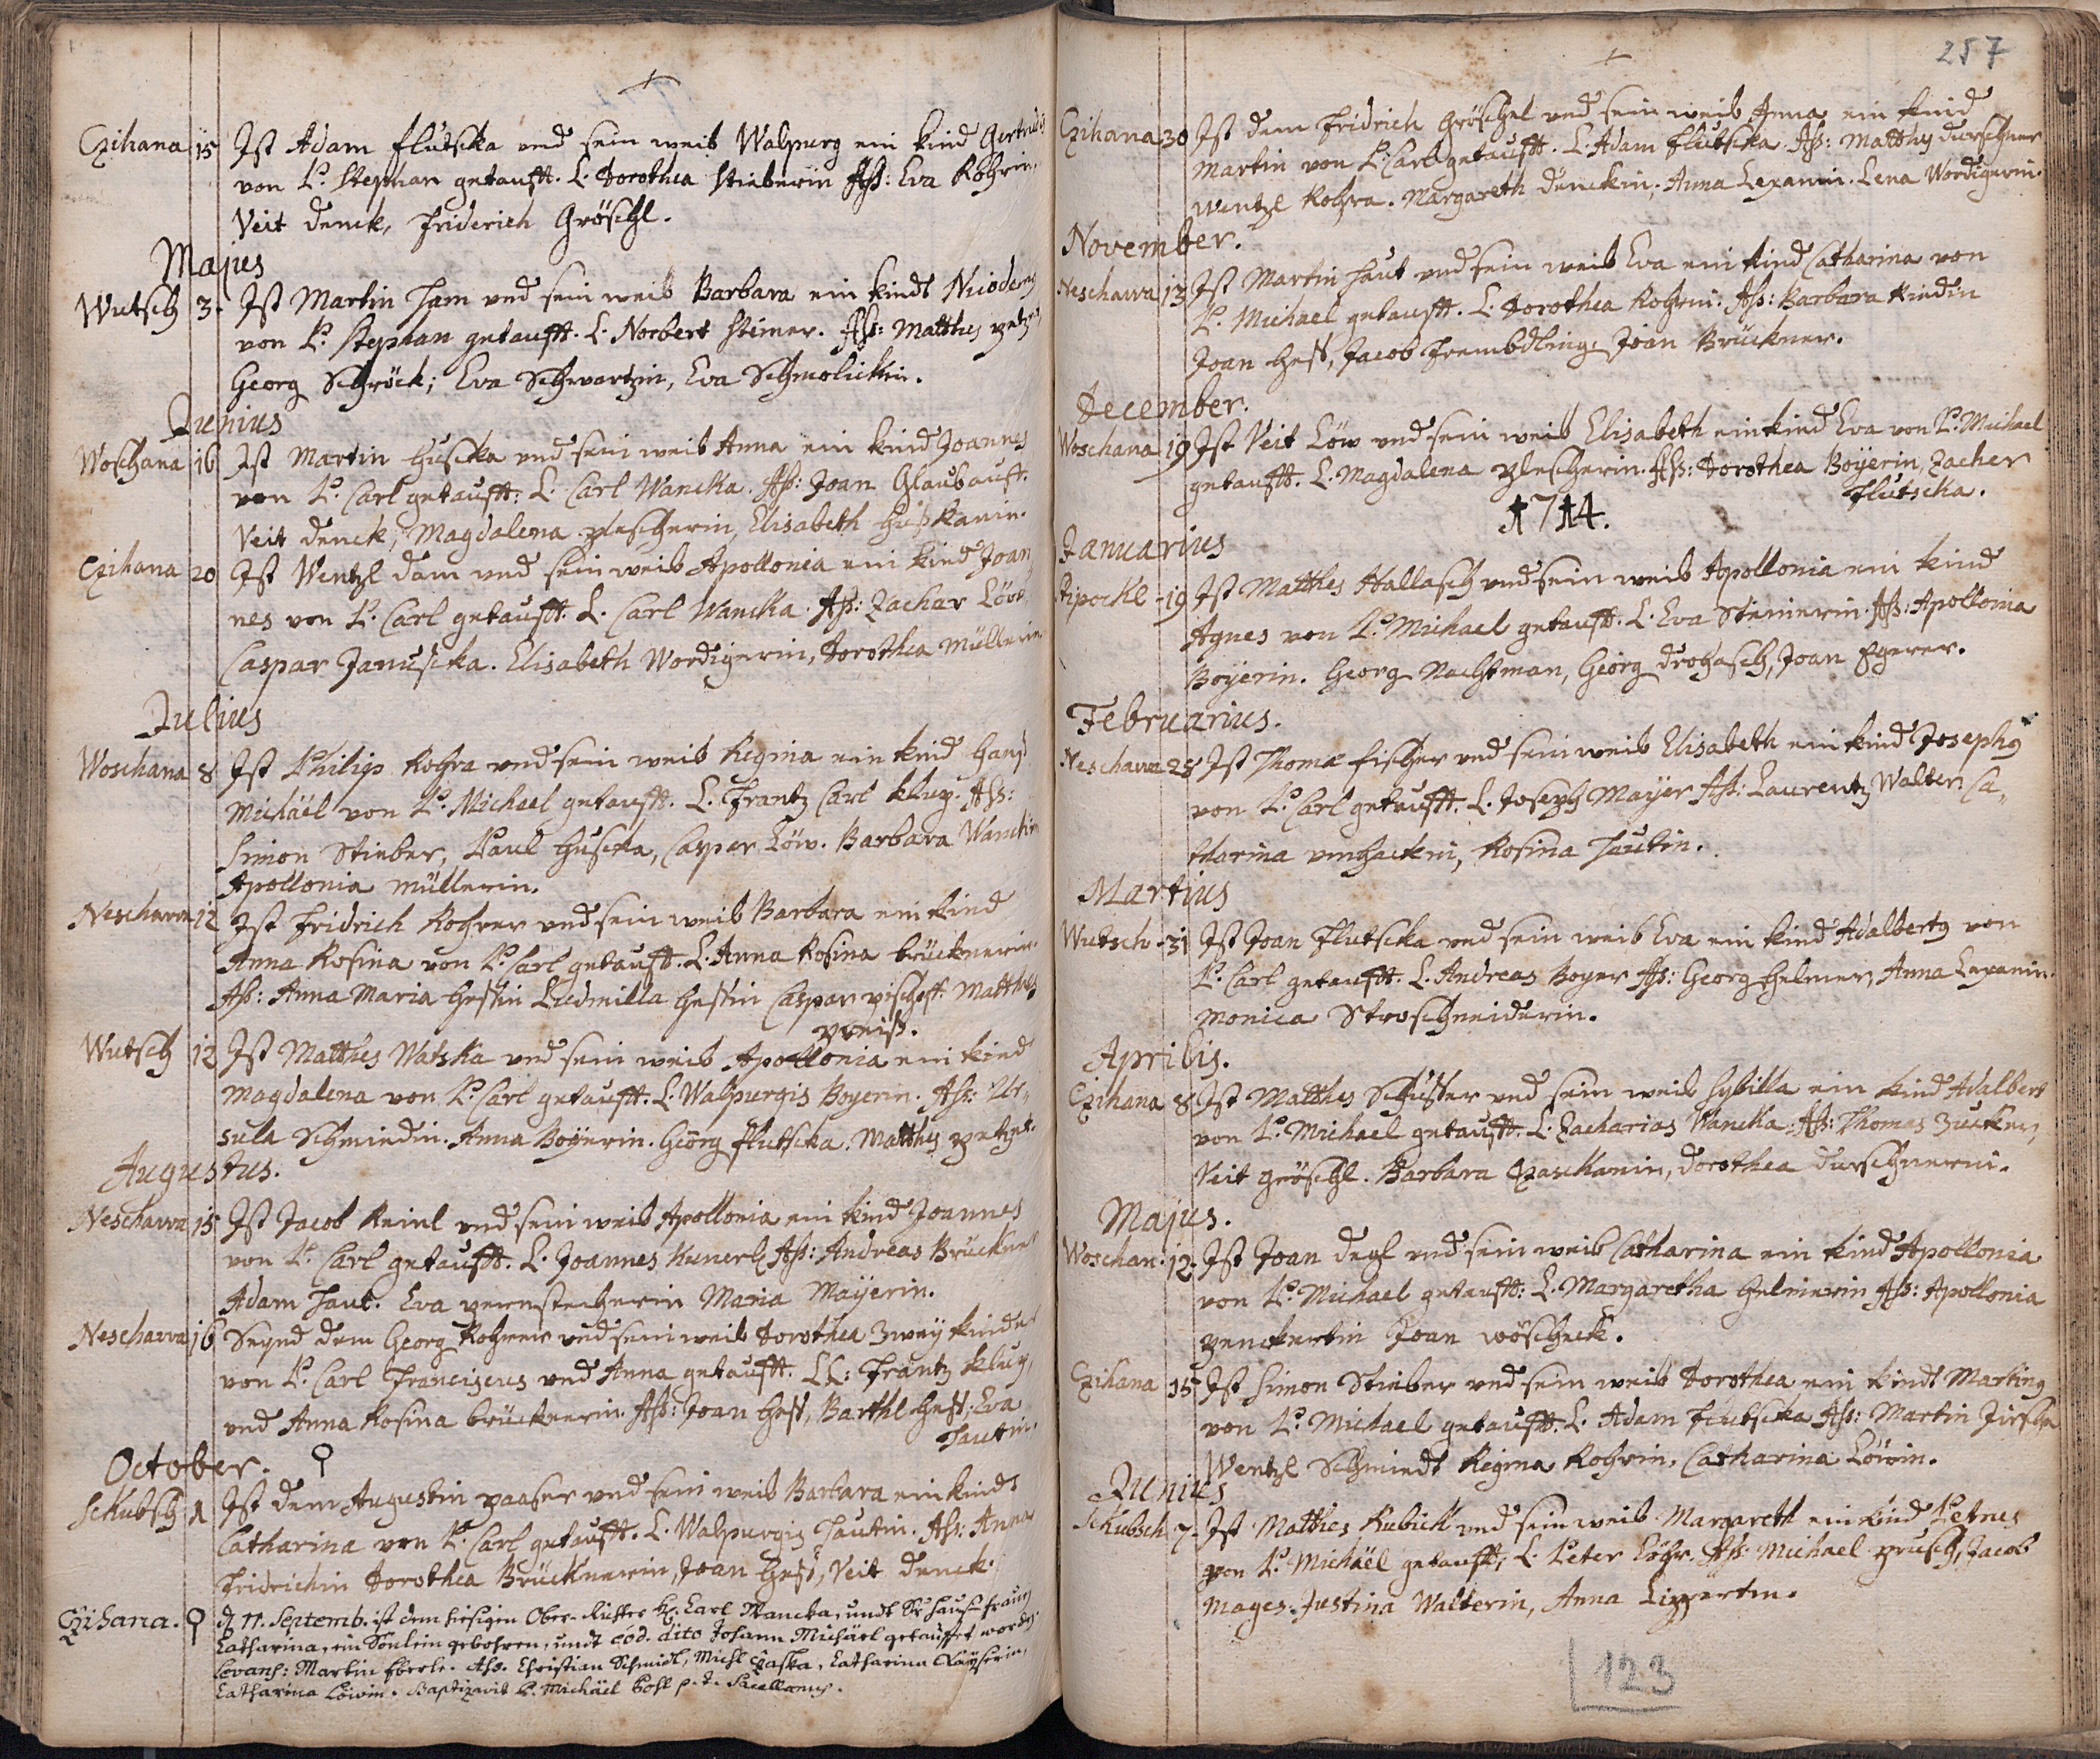 Czihana 15 Ist Adam flutska und sein weib Walpurg ein kind Gertrudis
von P. Stephan getaufft. L. Dorothea Stieberin Aß: Eva Rohrin.
Veit denck, friderich Gröschl.
Majus
Wutsch 3. Ist Martin Ham und sein weib Barbara ein kindt
von P. Stephan getaufft. L. Norbert Steiner. Aß: Matthes
Georg Schröck; Eva Schwartzin, Eva Schmolickin.
Junius
Woschana 16 Ist Martin Huscka und sein weib Anna ein kind Joannes
von P. Carl getaufft: L. Carl Wancka. Aß: Joan Glaubauff.
Veit denck, Magdalena plescherin, Elisabeth Hußkanin.
Czihana 20 Ist Wentzl dam und sein weib Apollonia ein kind Joan
nes von P. Carl getaufft. L. Carl Wancka. Aß: Zachar Löw
Caspar Januscka. Elisabeth Wordigerin, Dorothea Müllerin
Julius
Woschana 8 Ist Philip Rohra und sein weib Regina ein kind Hanß
Michäel von P. Michael getaufft. L. Frantz Carl klug. Aß:
Simon Stieber, Paul Huscka, Casper Löw. Barbara
Apollonia müllerin.
Neschawa 12 Ist fridrich Rohrer und sein weib Barbara ein kind
Anna Rosina von P. Carl getaufft. L. Anna Rosina brücknerin.
Aß: Anna Maria Hessin Ludmilla Hessin Caspar pischoff. Matthes
preiß.
Wutsch 12 Ist Matthes Watska und sein weib Apollonia ein kind
Magdalena von P. Carl getaufft. L. Walpurgis Boyerin. Aß: Ur„
sula Schmiedin. Anna Boyerin. Georg flutscka. Matthes
Augustus.
Neschawa 15 Ist Jacob Reinl und sein weib Apollonia ein kind Joannes
von P. Carl getaufft. L. Joannes Kunerl Aß: Andreas Brückner
Adam Haut. Eva pernstecherin Maria Mayerin.
Neschawa 16 Seynd dem Georg Rohrer und sein weib Dorothea Zwey kinder
von P. Carl Franciscus und Anna getaufft. LL: Frantz klug,
und Anna Rosina brücknerin. Aß: Joan Hess, Barthl Hess, Eva
Hautin.
October. ♀
Schubsch 1 Ist dem Augustin paaser und sein weib Barbara ein kindt
Catharina von P. Carl getaufft. L. Walpurgis Hautin. Aß: Anna
Fridrichin Dorothea Brücknerin, Joan Hess, Veit denck.
Czihana. ♀ d 11. Septemb. ist dem hiesigen Ober-Richter H. Carl Wancka, undt Sr hauß-frauen
Catharina, ein Sönlein gebohren, undt eod. dito Johann Michäel getauffet worden.
Levans: Martin Eberle. Ass. Christian Schmidl, Michl Czaska, Catharina Kayserin,
Catharina Löwin. Baptizavit P. Michäel Pohl p. t. Sacellanus.
257
Czihana 30 Ist dem fridrich Gröschel und sein weib Anna ein kind
Martin von P. Carl getaufft. L. Adam flutscka. Aß: Matthes durschner
Wentzl Rohra. Margareth denckin, Anna Lexanin. Lena Wordigerin.
November.
Neschawa 13 Ist Martin Haut und sein weib Eva ein kind Catharina von
P. Michael getaufft. L. Dorothea Rohrin. Aß: Barbara
Joan Hess, Jacob frembdling. Joan Brückner.
December.
Woschana 19 Ist Veit Löw und sein weib Elisabeth ein kind Eva von P. Michael
getaufft. L. Magdalena plescherin. Aß: Dorothea Boyerin, Zacher
flutscka.
1714.
Januarius
19 Ist Matthes Wallasch und sein weib Apollonia ein kind
Agnes von P. Michael getaufft. L. Eva Steinerin. Aß: Apollonia
Boyerin. Georg Nachtman, Georg drohasch, Joan Egerer.
Februarius.
Neschawa 28 Ist Thoma fischer und sein weib Elisabeth ein kind Josephus
von P. Carl getaufft. L. Joseph Mayer Aß: Laurentz Walter. Ca„
tharina, Rosina Hautin.
Martius
Wutsch 31 Ist Joan flutscka und sein weib Eva ein kind Adalbertus von
P. Carl getaufft. L. Andreas Boyer Aß: Georg Helmer, Anna Lexanin.
Monica Stroschneiderin.
Aprilis.
Czihana 8 Ist Matthes Schuster und sein weib Sybilla ein kind Adalbert
von P. Michael getaufft. L. Zacharias Wancka. Aß: Thomas Zucker,
Veit gröschl. Barbara Czaskanin, dorothea durschnerin.
Majus.
Woschan. 12. Ist Joan degl und sein weib Catharina ein kind Apollonia
von P. Michael getaufft: L. Margaretha Helmerin Aß: Apollonia
penckertin Joan wöscheck.
Czihana 15 Ist Simon Stieber und sein weib Dorothea ein kindt Martinus
von P. Michael getaufft. L. Adam flutscka Aß: Martin
Wentzl Schmiedt Regina Rohrin. Catharina Löwin.
Junius
Schubsch 7. Ist Matthes Kubick und sein weib Margareth ein kind Petrus
von P. Michäel getaufft; L. Peter Löhr. Aß: Michael prusch, Jacob
Mages. Justina Walterin, Anna Lippertin.
123